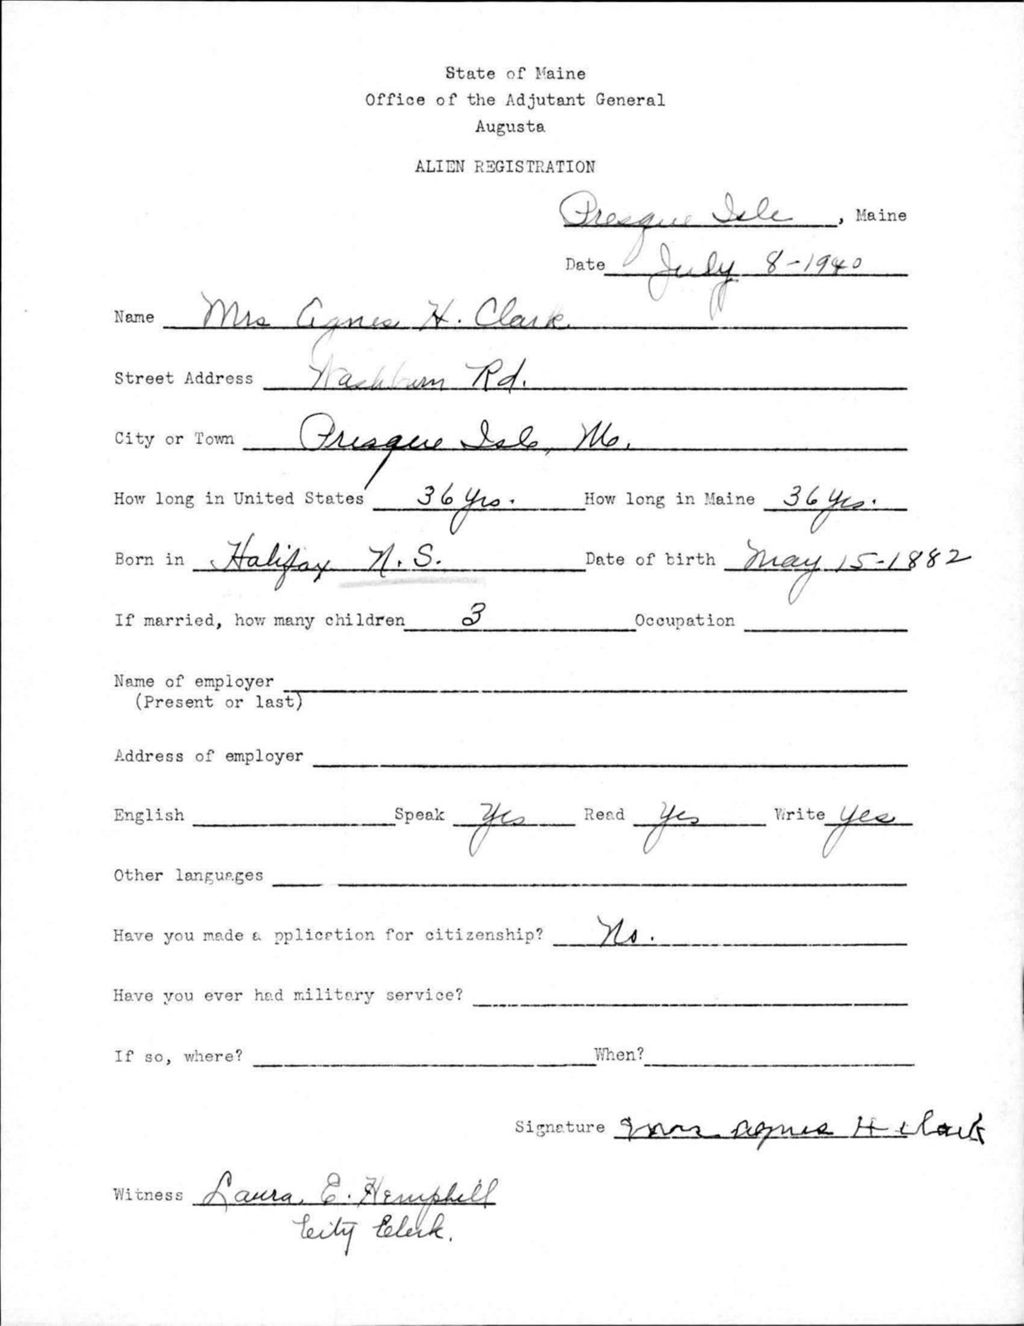 State of Maine
Office of the Adjutant General
Augusta
ALIEN REGISTRATION
Presque Isle, Maine
Date July 8-1940
Name Mrs Agnes H. Clark.
Street Address Washburn Rd.
City or Town Presque Isle, Me.
How long in United States 36 yrs. How long in Maine 36 yrs.
Born in Halifax N.S. Date of birth May 15-1882
If married, how many children 3 Occupation
Name of employer
(Present or last)
Address of employer
English Speak Yes Read Yes Write Yes
Other languages
Have you made a pplication for citizenship? No.
Have you ever had military service?
If so, where? When?
Signature Mrs Agnes H Clark
Witness Laura. E. Hemphill
City Clerk.